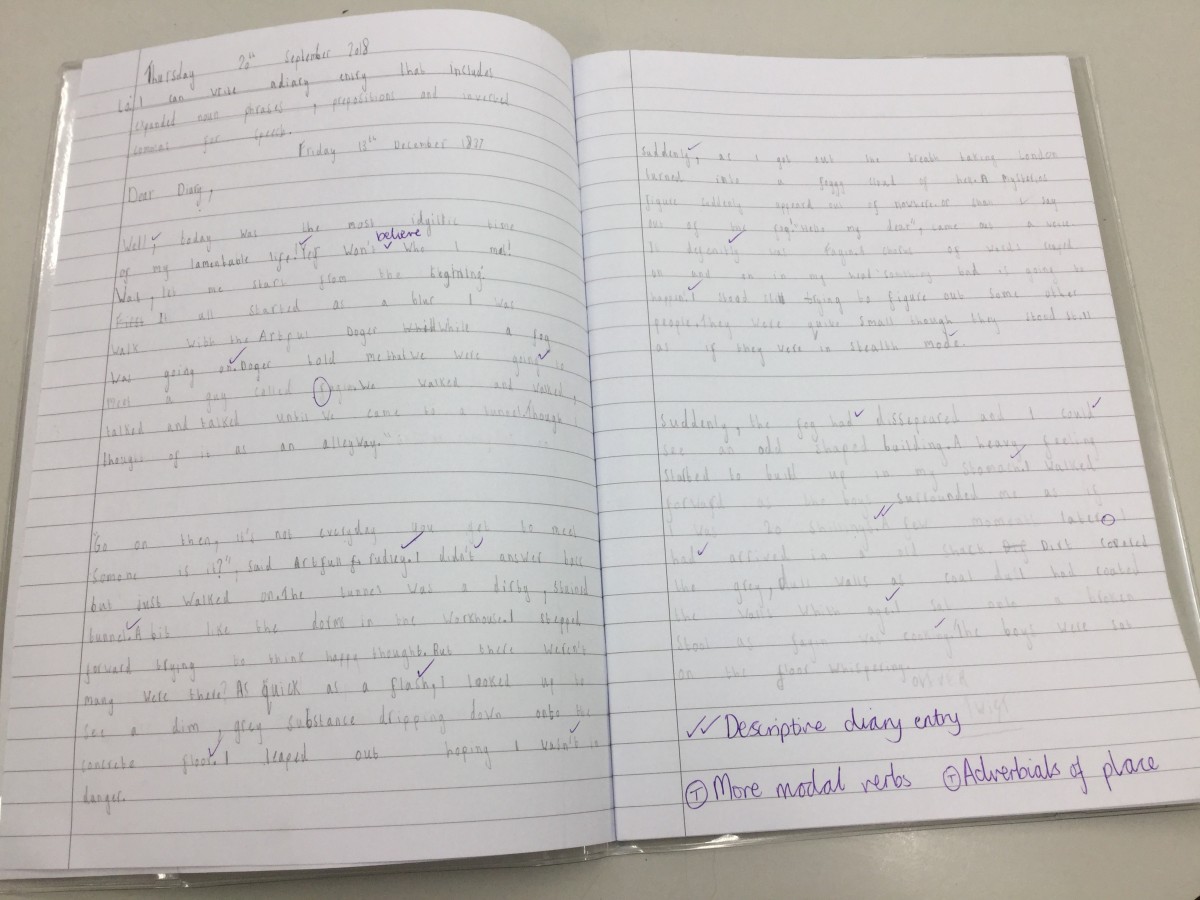 Thursday 20th September 2018
LO: I can write a diary entry that includes
expanded noun phrases, prepositions and inverted
commas for speech.
Friday 13th December 1822
Dear Diary,
Well, today was the most idyillic time
believe
of my lamentable life! Yes Won't Who I met!
Was, let me start from the
First It all started as a blur I was
walk with the Artful Doger While a fog
was going on. Doger told me that we were going to
meet a guy called Fagin. We walked and walked,
talked and talked until we came to a tunnel. Though I
though of it as an alleyway."
"Go on then, it's not everyday you get to meet
Somone is it?", said Artfun rudley. I didn't answer back
but just walked on. The tunnel was a dirty, stained
tunnel. A bit like the dorms in the workhouse. I stepped
forward trying to think happy thought. But there weren't
many were there? As quick as a flash, I looked up to
see a dim, grey substance dripping down onto the
concrete floor. I leaped out hoping I wasn't in
danger.
Suddenly, as I got out the breath taking London
turned into a foggy cloud of A Mysteries
figure suddenly appeared out of nowhere.
out of the fog. "Hello my dear", came out a voice
It defenitly was Fagin. A chorus of words
on and on in my head Something bad is going to
happen. I stood still trying to figure out some other
people. They were quite small though they stood still
as if they were in stealth mode.
Suddenly, the fog had dissepeared and I could
see an odd shaped building. A heavy feeling
Started to build up in my Stomach. I walked
forward as the boys surrounded me as if
I was so A few moments later I
had arrived in a old shack. Dirt covered
the grey, dull walls as coal dust had coated
the walls which aged sat onto a broken
Stool as Fagin was cooking. The boys were sat
on the floor whispering.
OLIVER
Twist
Descriptive diary entry
T More modal verbs T Adverbials of place